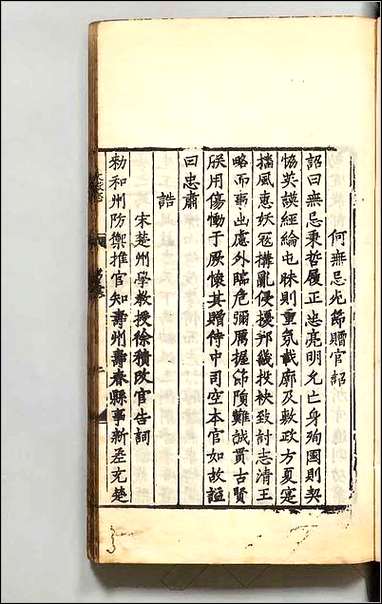 何無忌死節贈官詔
詔曰無忌秉哲履正忠亮明允亡身殉國則契
恊英謨經綸屯昧則重氛載廓及敷政方夏寔
播風惠妖宼搆亂侵擾邦畿投袂致討志清王
略而事出慮外臨危彌厲握節隕難誠貫古賢
朕用傷慟于厥懷其贈侍中司空本官如故謚
曰忠肅
誥
宋楚州學教授徐積改官告詞
勑和州防禦推官知壽州壽春縣事新差充楚